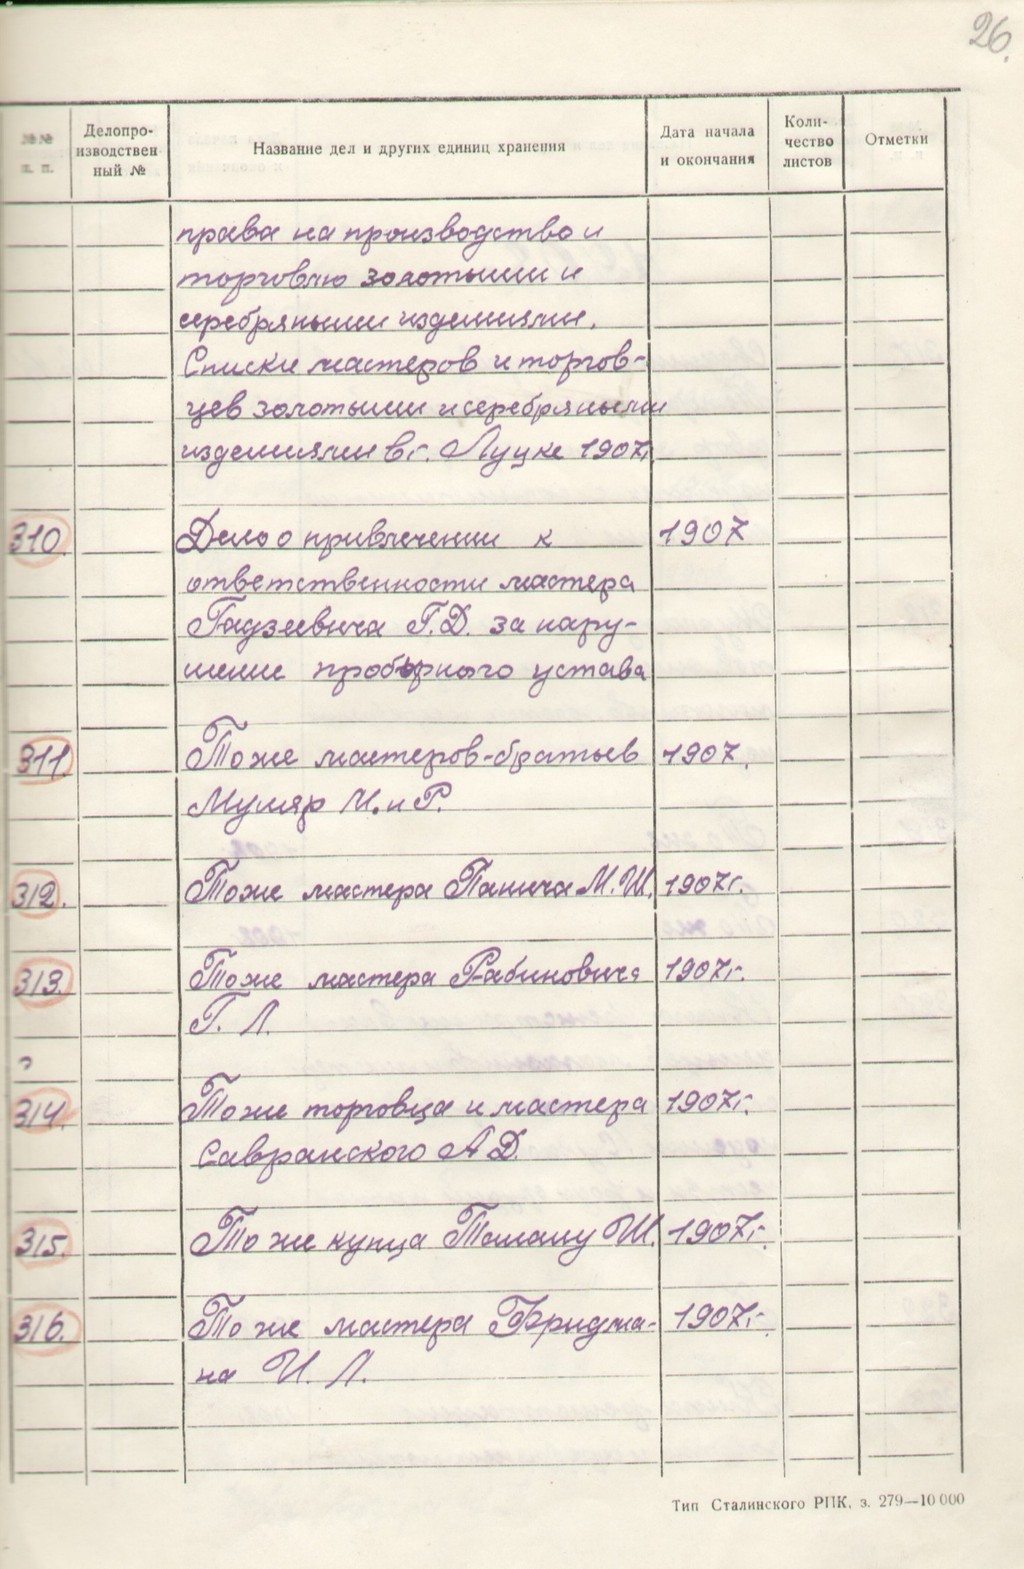 26.
№№ п. п.
Делопро-
изводствен
ный №
Название дел и других единиц хранения
Дата начала
и окончания
Коли-
чество
листов
Отметки
права на производство и
торговлю золотыми и
серебряными изделиями.
Списки мастеров и торгов-
цев золотыми и серебряными
изделиями в г. Луцке 1907г.
310. Дело о привлечении к 1907
ответственности мастера
Гаузеевича Г.Д. за нару-
шение пробирного устава
311. То же мастеров-братьев 1907.
Муляр И. и Р.
312. То же мастера Панича М.Ш. 1907г.
313. То же мастера Рабиновича 1907г.
Г. Л.
?
314. То же торговца и мастера 1907г.
Савранского А Д.
315. То же купца Ш. 1907г.
316. То же мастера Фридма- 1907г.
на И. Л.
Тип Сталинского РПК. з. 279—10 000